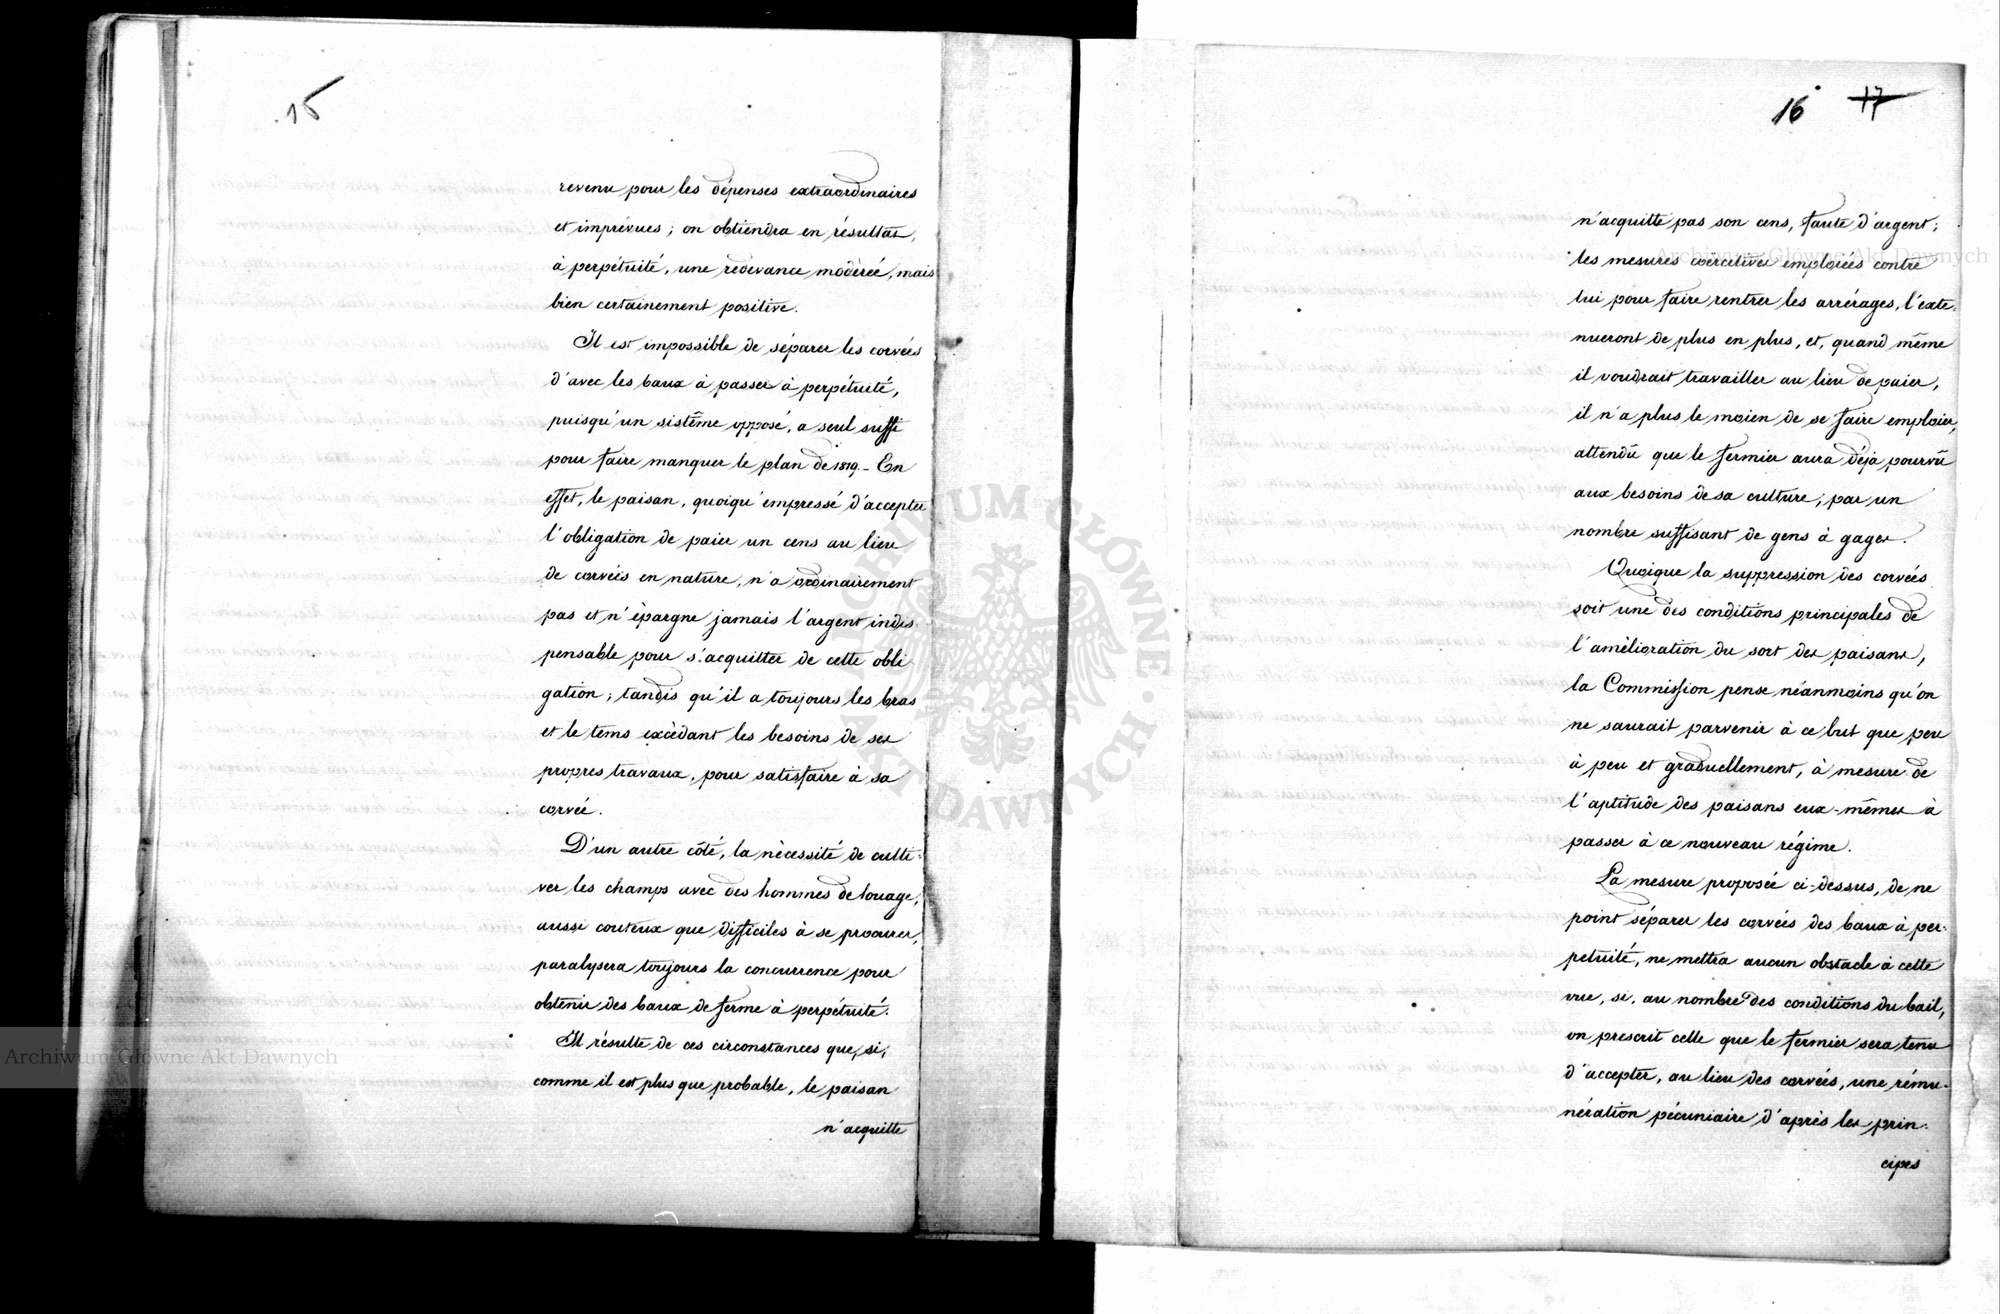 15
revenu pour les dépenses extraordinaires
et imprévues; on obtiendra en résultat,
à perpétuité, une redevance modérée, mais
bien certainement positive.
Il est impossible de séparer les corvées
d'avec les baux à passer à perpétuité,
puisqu'un sistême opposé, a seul suffi
pour faire manquer le plan de 1819. - En
effet, le paisan, quoiqu'empressé d'accepter
l'obligation de paier un cens au lieu
de corvées en nature, n'a ordinairement
pas et n'épargne jamais l'argent indis-
pensable pour s'acquitter de cette obli
gation; tandis qu'il a toujours les bras
et le tems excédant les besoins de ses
propres travaux, pour satisfaire à sa
corvée.
D'un autre côté, la nécessité de culti-
ver les champs avec des hommes de louage,
aussi couteux que difficiles à se procurer,
paralysera toujours la concurrence pour
obtenir des baux de ferme à perpétuité.
Il résulte de ces circonstances que, si,
comme il est plus que probable, le paisan
n'acquitte
16 17
n'acquitte pas son cens, faute d'argent;
les mesures coercitives emploiées contre
lui pour faire rentrer les arrérages, l'exte-
nueront de plus en plus, et, quand même
il voudrait travailler au lieu de paier,
il n'a plus le moien de se faire emploier,
attendû que le fermier aura déjà pourvû
aux besoins de sa culture, par un
nombre suffisant de gens à gages.
Quoique la suppression des corvées
soit une des conditions principales de
l'amélioration du sort des paisans,
la Commission pense néanmoins qu'on
ne saurait parvenir à ce but que peu
à peu et graduellement, à mesure de
l'aptitude des paisans eux-mêmes à
passer à ce nouveau régime.
La mesure proposée ci-dessus, de ne
point séparer les corvées des baux à per-
pétuité, ne mettra aucun obstacle à cette
vue, si, au nombre des conditions du bail,
on prescrit celle que le fermier sera tenu
d'accepter, au lieu des corvées, une rému-
nération pécuniaire d'après les prin-
cipes
Archiwum Główne Akt Dawnych
Archiwum Główne Akt Dawnych
ARCHIWUM GŁÓWNE · AKT DAWNYCH ·